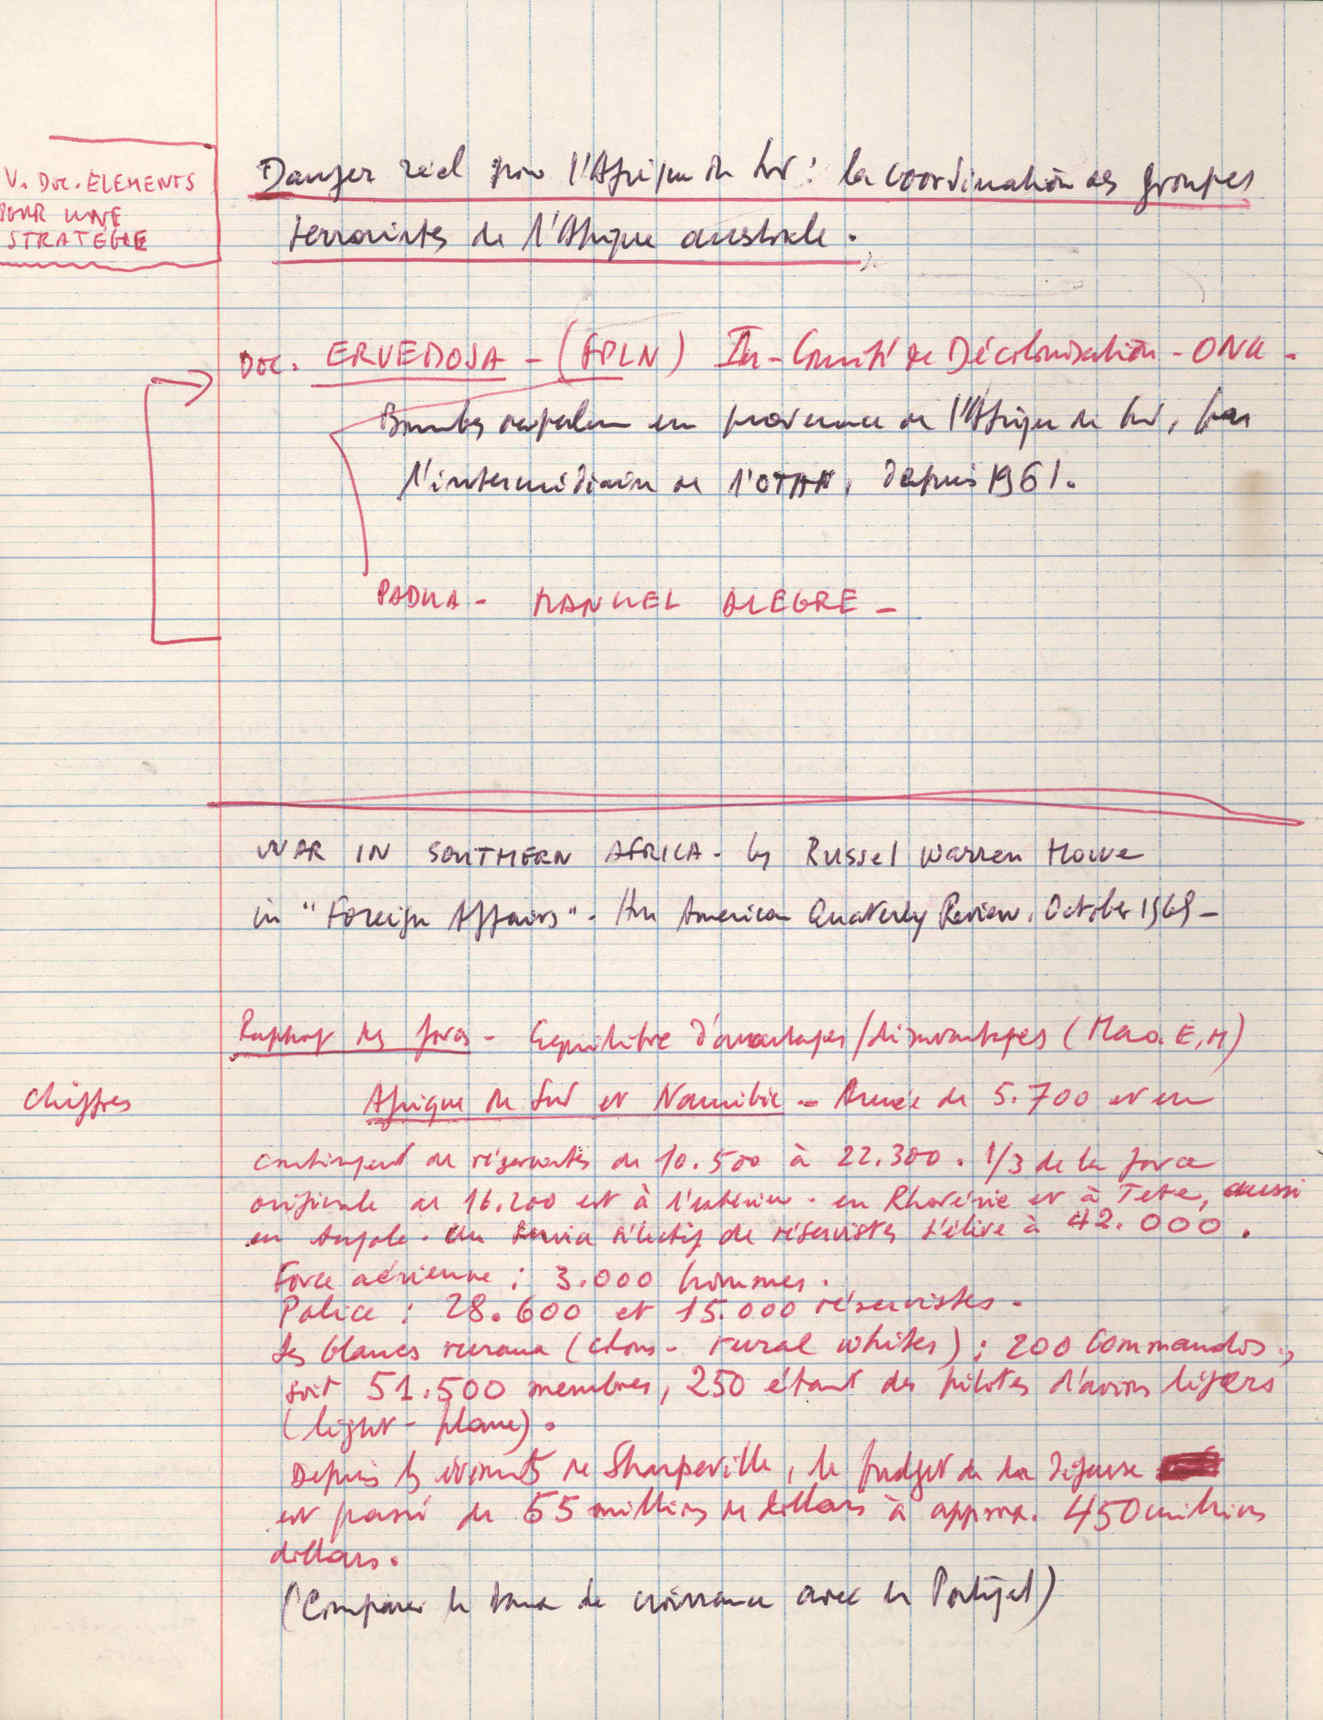 V. Doc. ELEMENTS
POUR UNE
STRATEGIE
Danger réel pour l'Afrique du Sud : la coordination des groupes
terroristes de l'Afrique australe.
Doc. ERVEDOSA - (FPLN) In - Comité de Décolonisation - ONU -
Bombes napalm en provenance de l'Afrique du Sud, par
l'intermédiaire de l'OTAN, depuis 1961.
PADUA - MANUEL ALEGRE -
WAR IN SOUTHERN AFRICA - by Russel Warren Howe
in "Foreign Affairs" - An American Quaterly Review. October 1969 -
Rapport des forces - Equilibre d'avantages/désavantages (Mao. E, M)
Chiffres
Afrique du Sud et Namibie - Armée de 5.700 et un
contingent de réservistes de 10.500 à 22.300. 1/3 de la force
originale de 16.200 est à l'extérieur - en Rhodésie et à Tete, aussi
en Angola. Un service sélectif de réservistes s'élève à 42.000.
Force aérienne : 3.000 hommes.
Police : 28.600 et 15.000 réservistes -
Les blancs ruraux ( - rural whites) : 200 Commandos,
soit 51.500 membres, 250 étant des pilotes d'avions légers
(light - plane).
Depuis les évènements de Sharpeville, le budget de la défense
est passé de 65 millions de dollars à approx. 450 millions
dollars.
(Comparer le taux de croissance avec le Portugal)